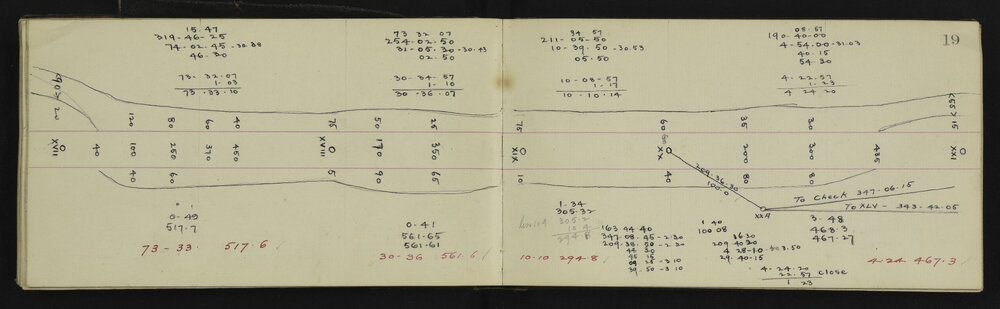 15.47
319-46-25
74-02.45-30.38
46.30
73-32.07
1-03
73.33.10
73 32 07
254-02.50
31-05.30-30.43
02.50
30-34-57
1-10
30-36.07
34 57
211-05-50
10-39.50-30.53
05.50
10-08-57
1-17
10-10.14
05.57
190-40-00
4-54.00-31.03
40.15
54.30
4-22.57
1-23
4 24 20
19
<90> 22
120
80
60
40
75
50
25
75
60
35
30
<55> 15
XVII
40
100
250
370
450
XVIII
170
350
XIX
XX
200
300
485
XXI
40
60
5
90
65
10
40
80
80
209-36-30
100.0
XXA
To Check 347-06.15
To XLV - 343-42.05
0-49
517-7
73-33. 517.6
0-41
561-65
561-61
30-36 561.6
1-34
305.32
305.2
10.4
294.8
10-10 294-8
163 44 40
347-08.45-2.30
209-38.50-2-20
44 30
45 15
39.50-3.10
1.40
100 08
36 30
209 40 30
4 28-10-303.50
29-40-15
3-48
468-3
467-27
4-24-20
22.57 close
1 23
4-24 467.3